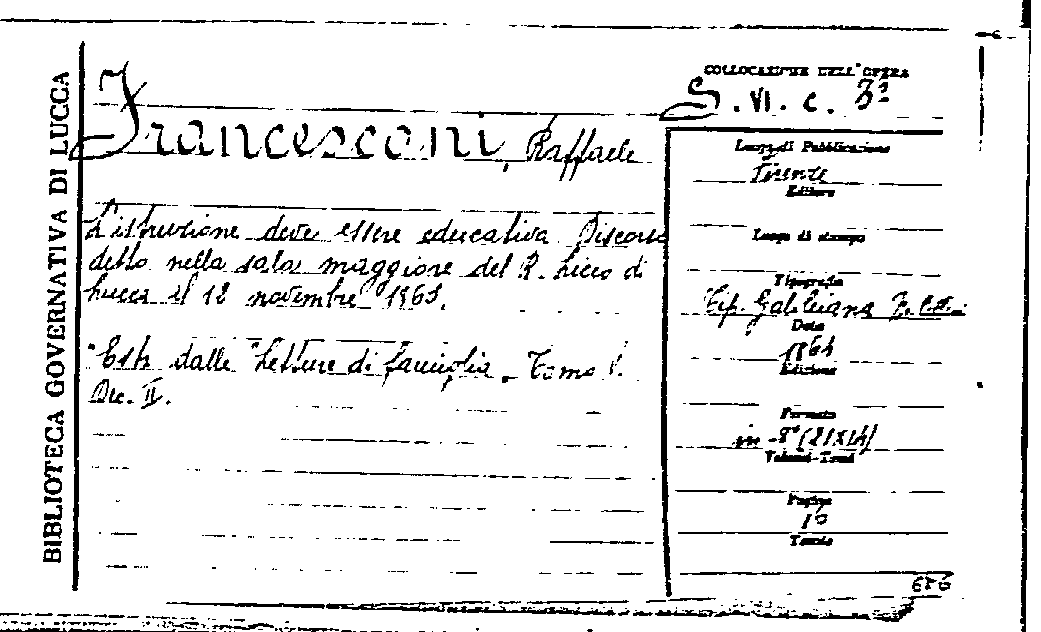 BIBLIOTECA GOVERNATIVA DI LUCCA
Francesconi, Raffaele
L'istruzione deve essere educativa Discorso
detto nella sala maggiore del R. Liceo di
Lucca il 12 novembre 1863.
Estr. dalle "Letture di famiglia. Tomo
Dec. II.
COLLOCAZIONE DELL'OPERA
S. VI. c.
Luogo di Pubblicazione
Firenze
Editore
Luogo di stampa
Tipografia
Tip. Galileiana
Data
1864
Edizione
Formato
in-8° (21x14)
Volumi-Tomi
Pagine
Tavole